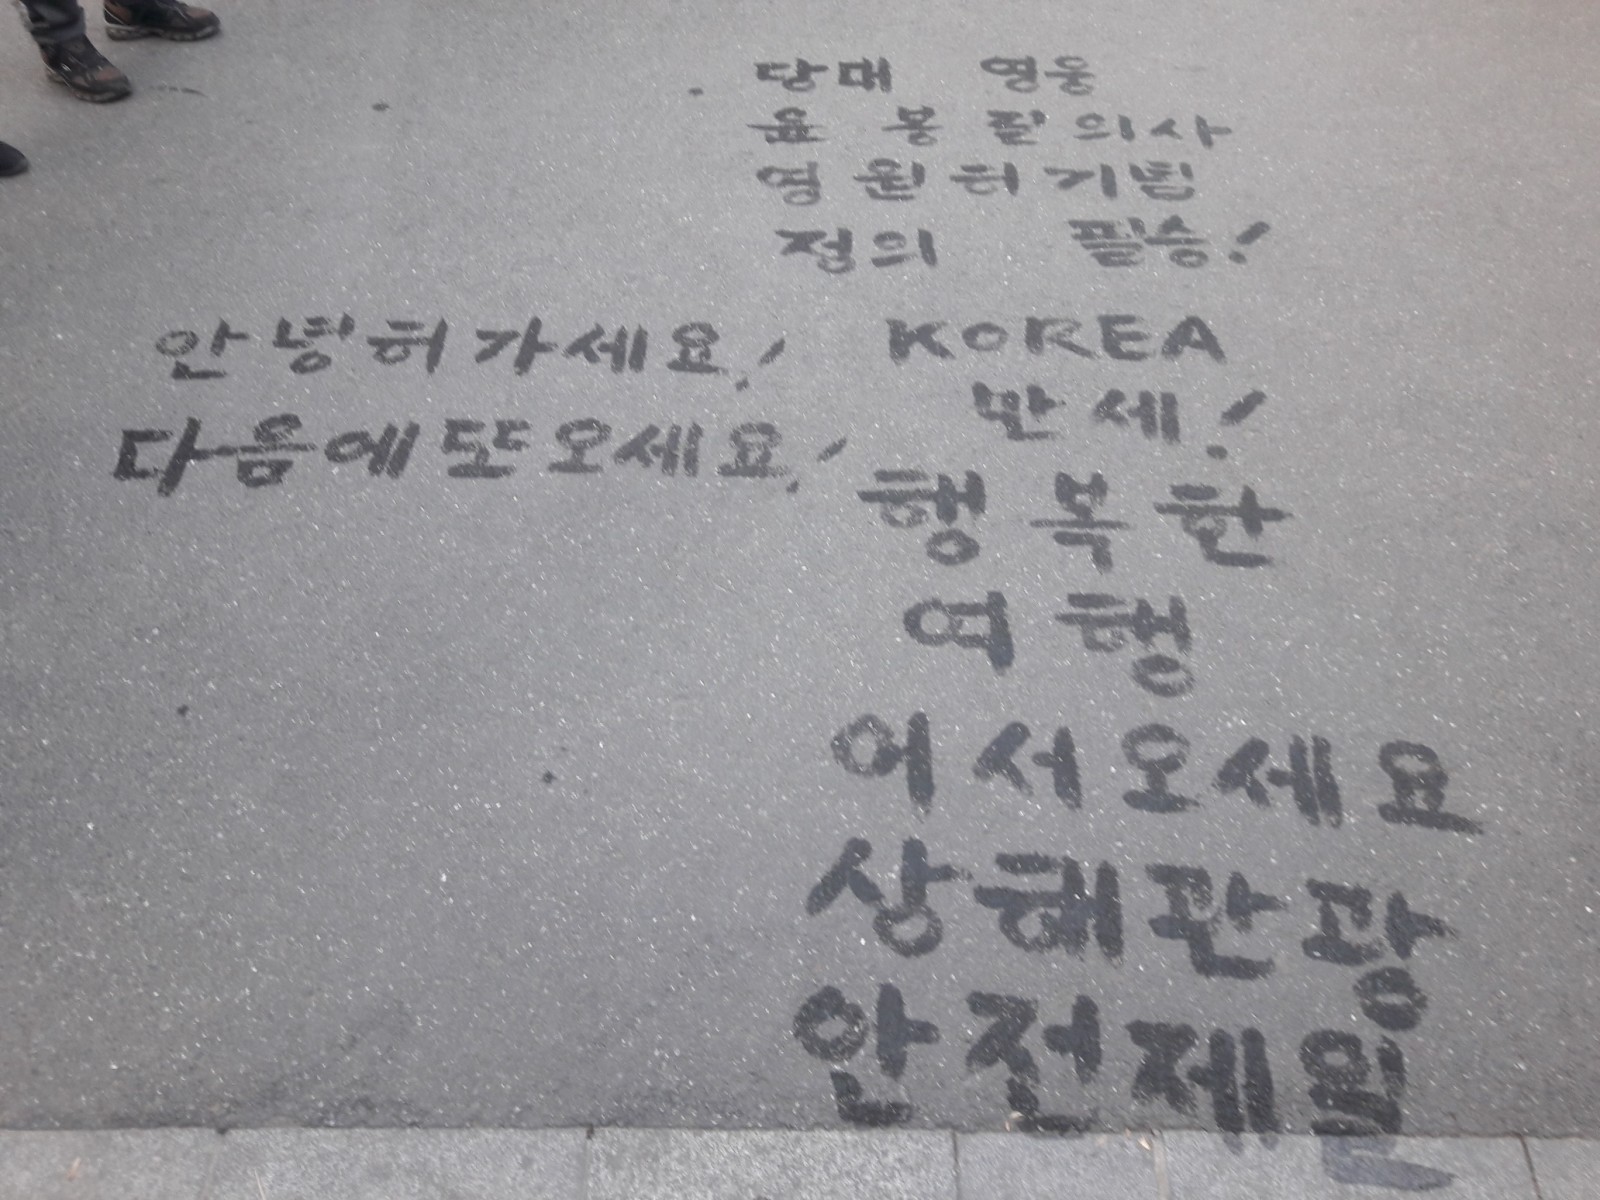 당대 영웅
윤 봉 길 의사
영 원 히 기념
정의 필승!
KOREA
만세!
행복한
여행
어서오세요
상해관광
안전제일
안녕히가세요!
다음에또오세요!